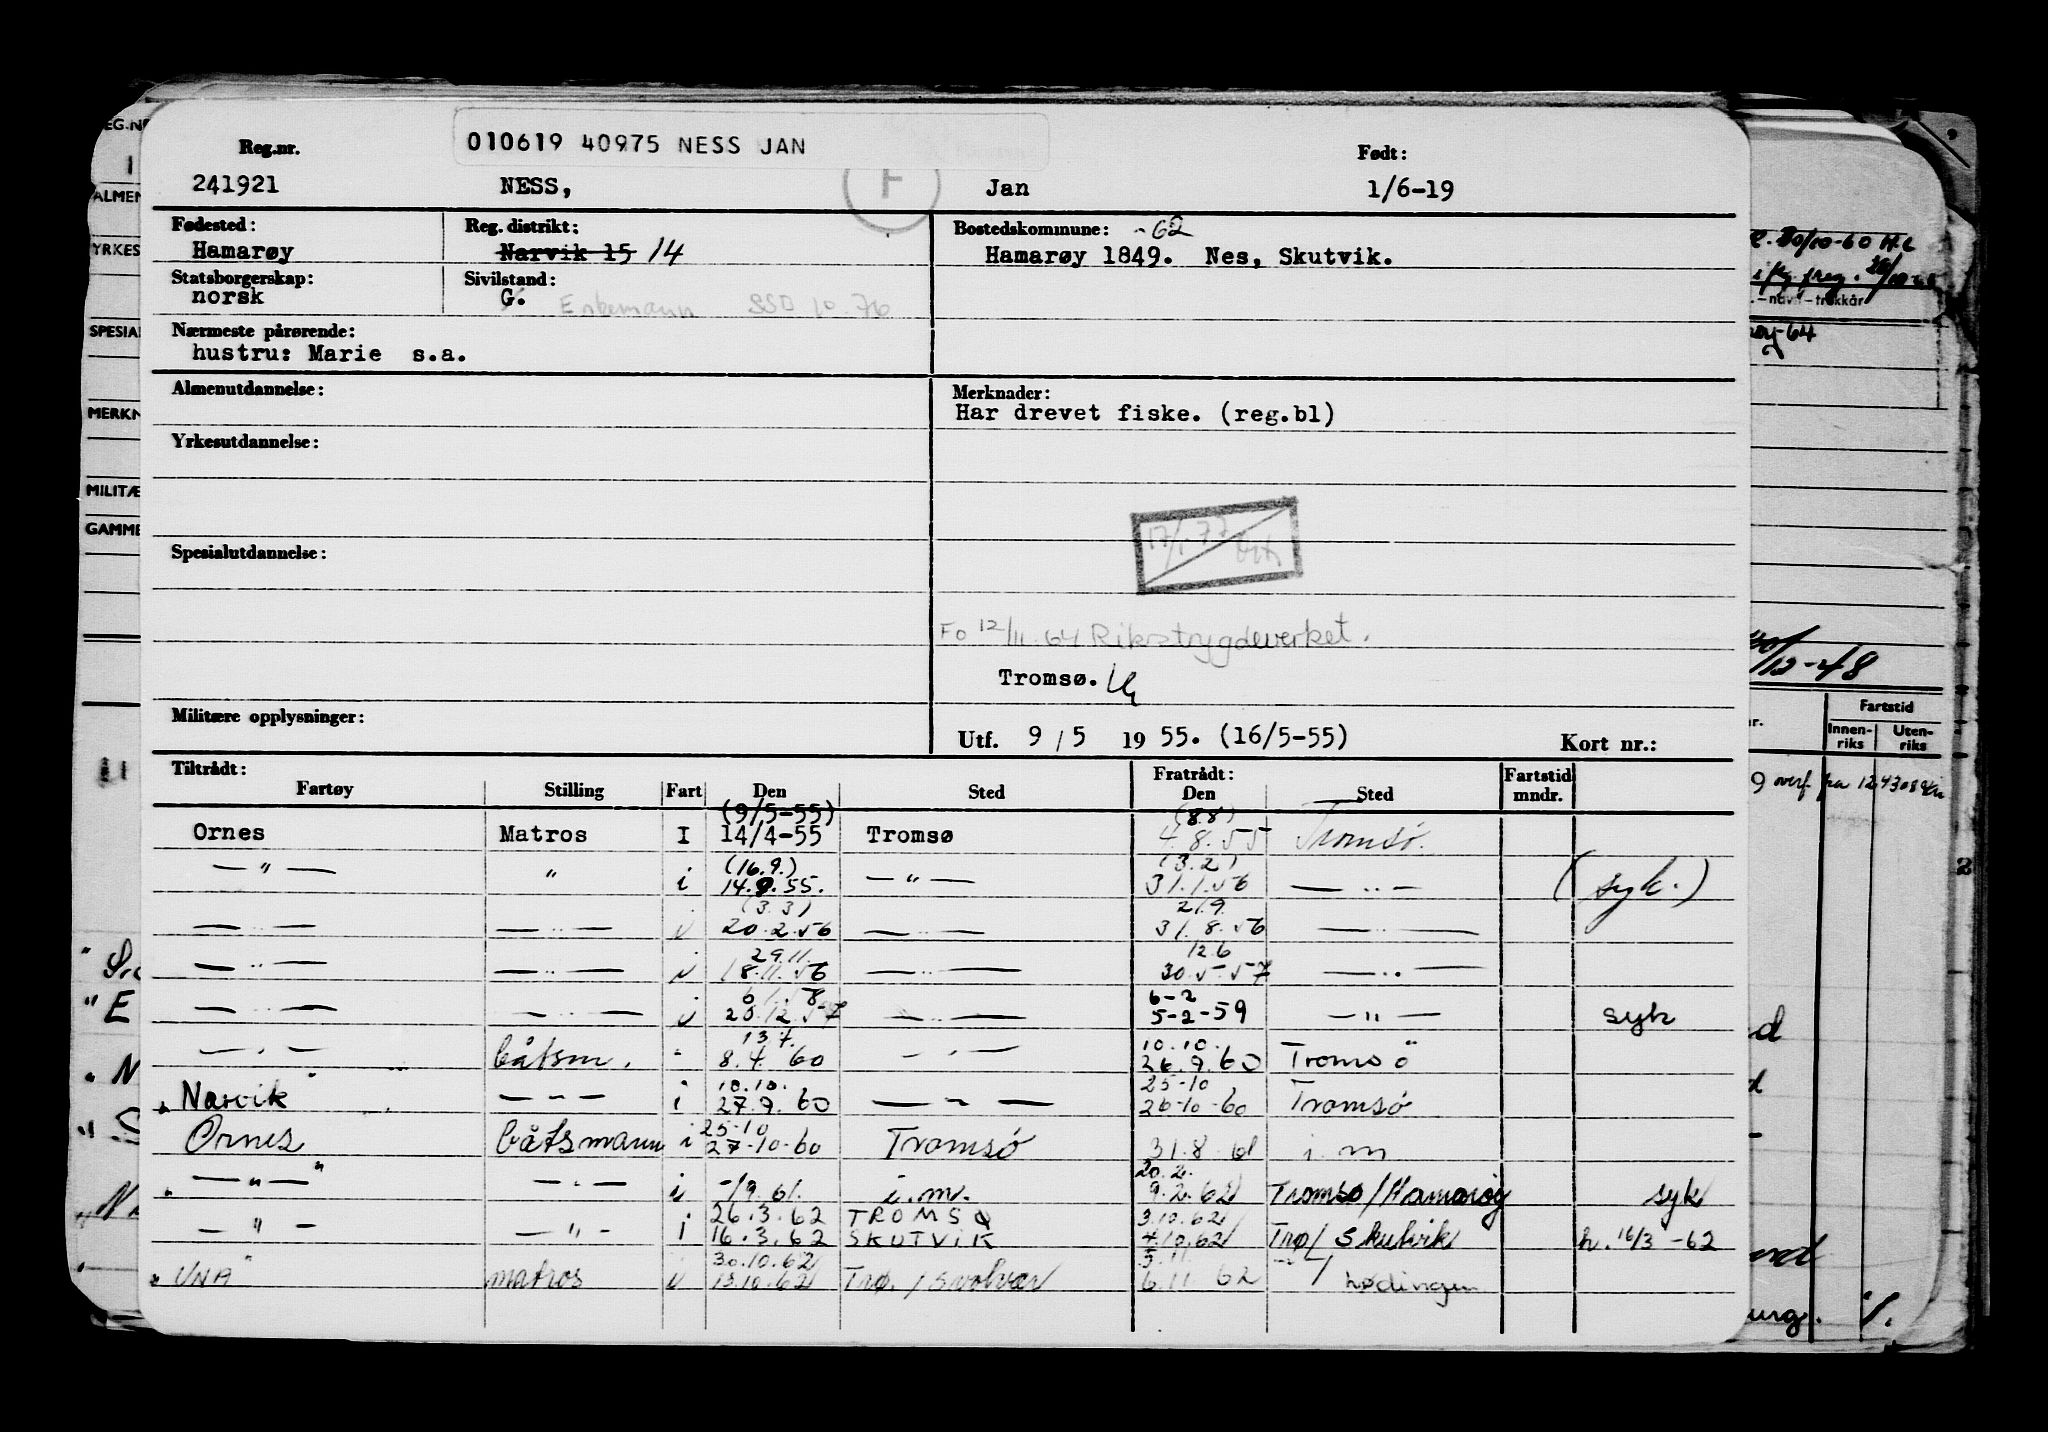 010619 40975 NESS JAN
Reg.nr. Født:
241921 NESS, Jan 1/6-19
F
Fødested: Reg. distrikt: Bostedskommune: -62
Hamarøy Narvik 15 14 Hamarøy 1849. Nes, Skutvik.
Statsborgerskap: Sivilstand:
norsk G. Enkemann SSD 10.76
Nærmeste pårørende:
hustru: Marie s.a.
Almenutdannelse: Merknader:
Har drevet fiske. (reg.bl)
Yrkesutdannelse:
17/1 77
Spesialutdannelse:
Fo 12/11.64 Rikstrygdeverket.
Tromsø.
Militære opplysninger:
Utf. 9/5 1955. (16/5-55) Kort nr.:
Tiltrådt: Fratrådt: Fartstid
Fartøy Stilling Fart Den Sted Den Sted mndr.
(9/5-55) (8.8)
Ornes Matros I 14/4-55 Tromsø 4.8.55 Tromsø.
(16.9.) (3.2)
— " — " i 14.9.55. — " — 31.1.56 — .. — (syk.)
(3.3) 21.9.
— .. — — .. — i 20.2.56 — .. — 31.8.56 — .. —
29.11. 12.6
— .. — — .. — i 18.11.56 — .. — 30.5.57 — .. —
6/1.58 6-2
— .. — — .. — i 20.12.57 — .. — 5-2-59 — " — syk
13.7. 10.10.
— . — båtsm. - 8.7.60 — . — 26.9.60 Tromsö
10.10. 25-10
" Narvik" — " — i 27.9.60 — " — 26-10-60 Tromsø
25-10
Ornes båtsmann i 27-10-60 Tromsø 31.8.61 i.m
20.2.
" — " — " — . — i -/9.61. i.m. 9.2.62 Tromsø/Hamarøy syk
26.3.62 TROMSØ 3.10.62
— " — — " — i 16.3.62 SKUTVIK 4.10.62 Trø/Skutvik h. 16/3-62
30.10.62 5.11.
" UNA" matros i 13.10.62 Trø./Svolvær 6.11.62 — " — / Lødingen